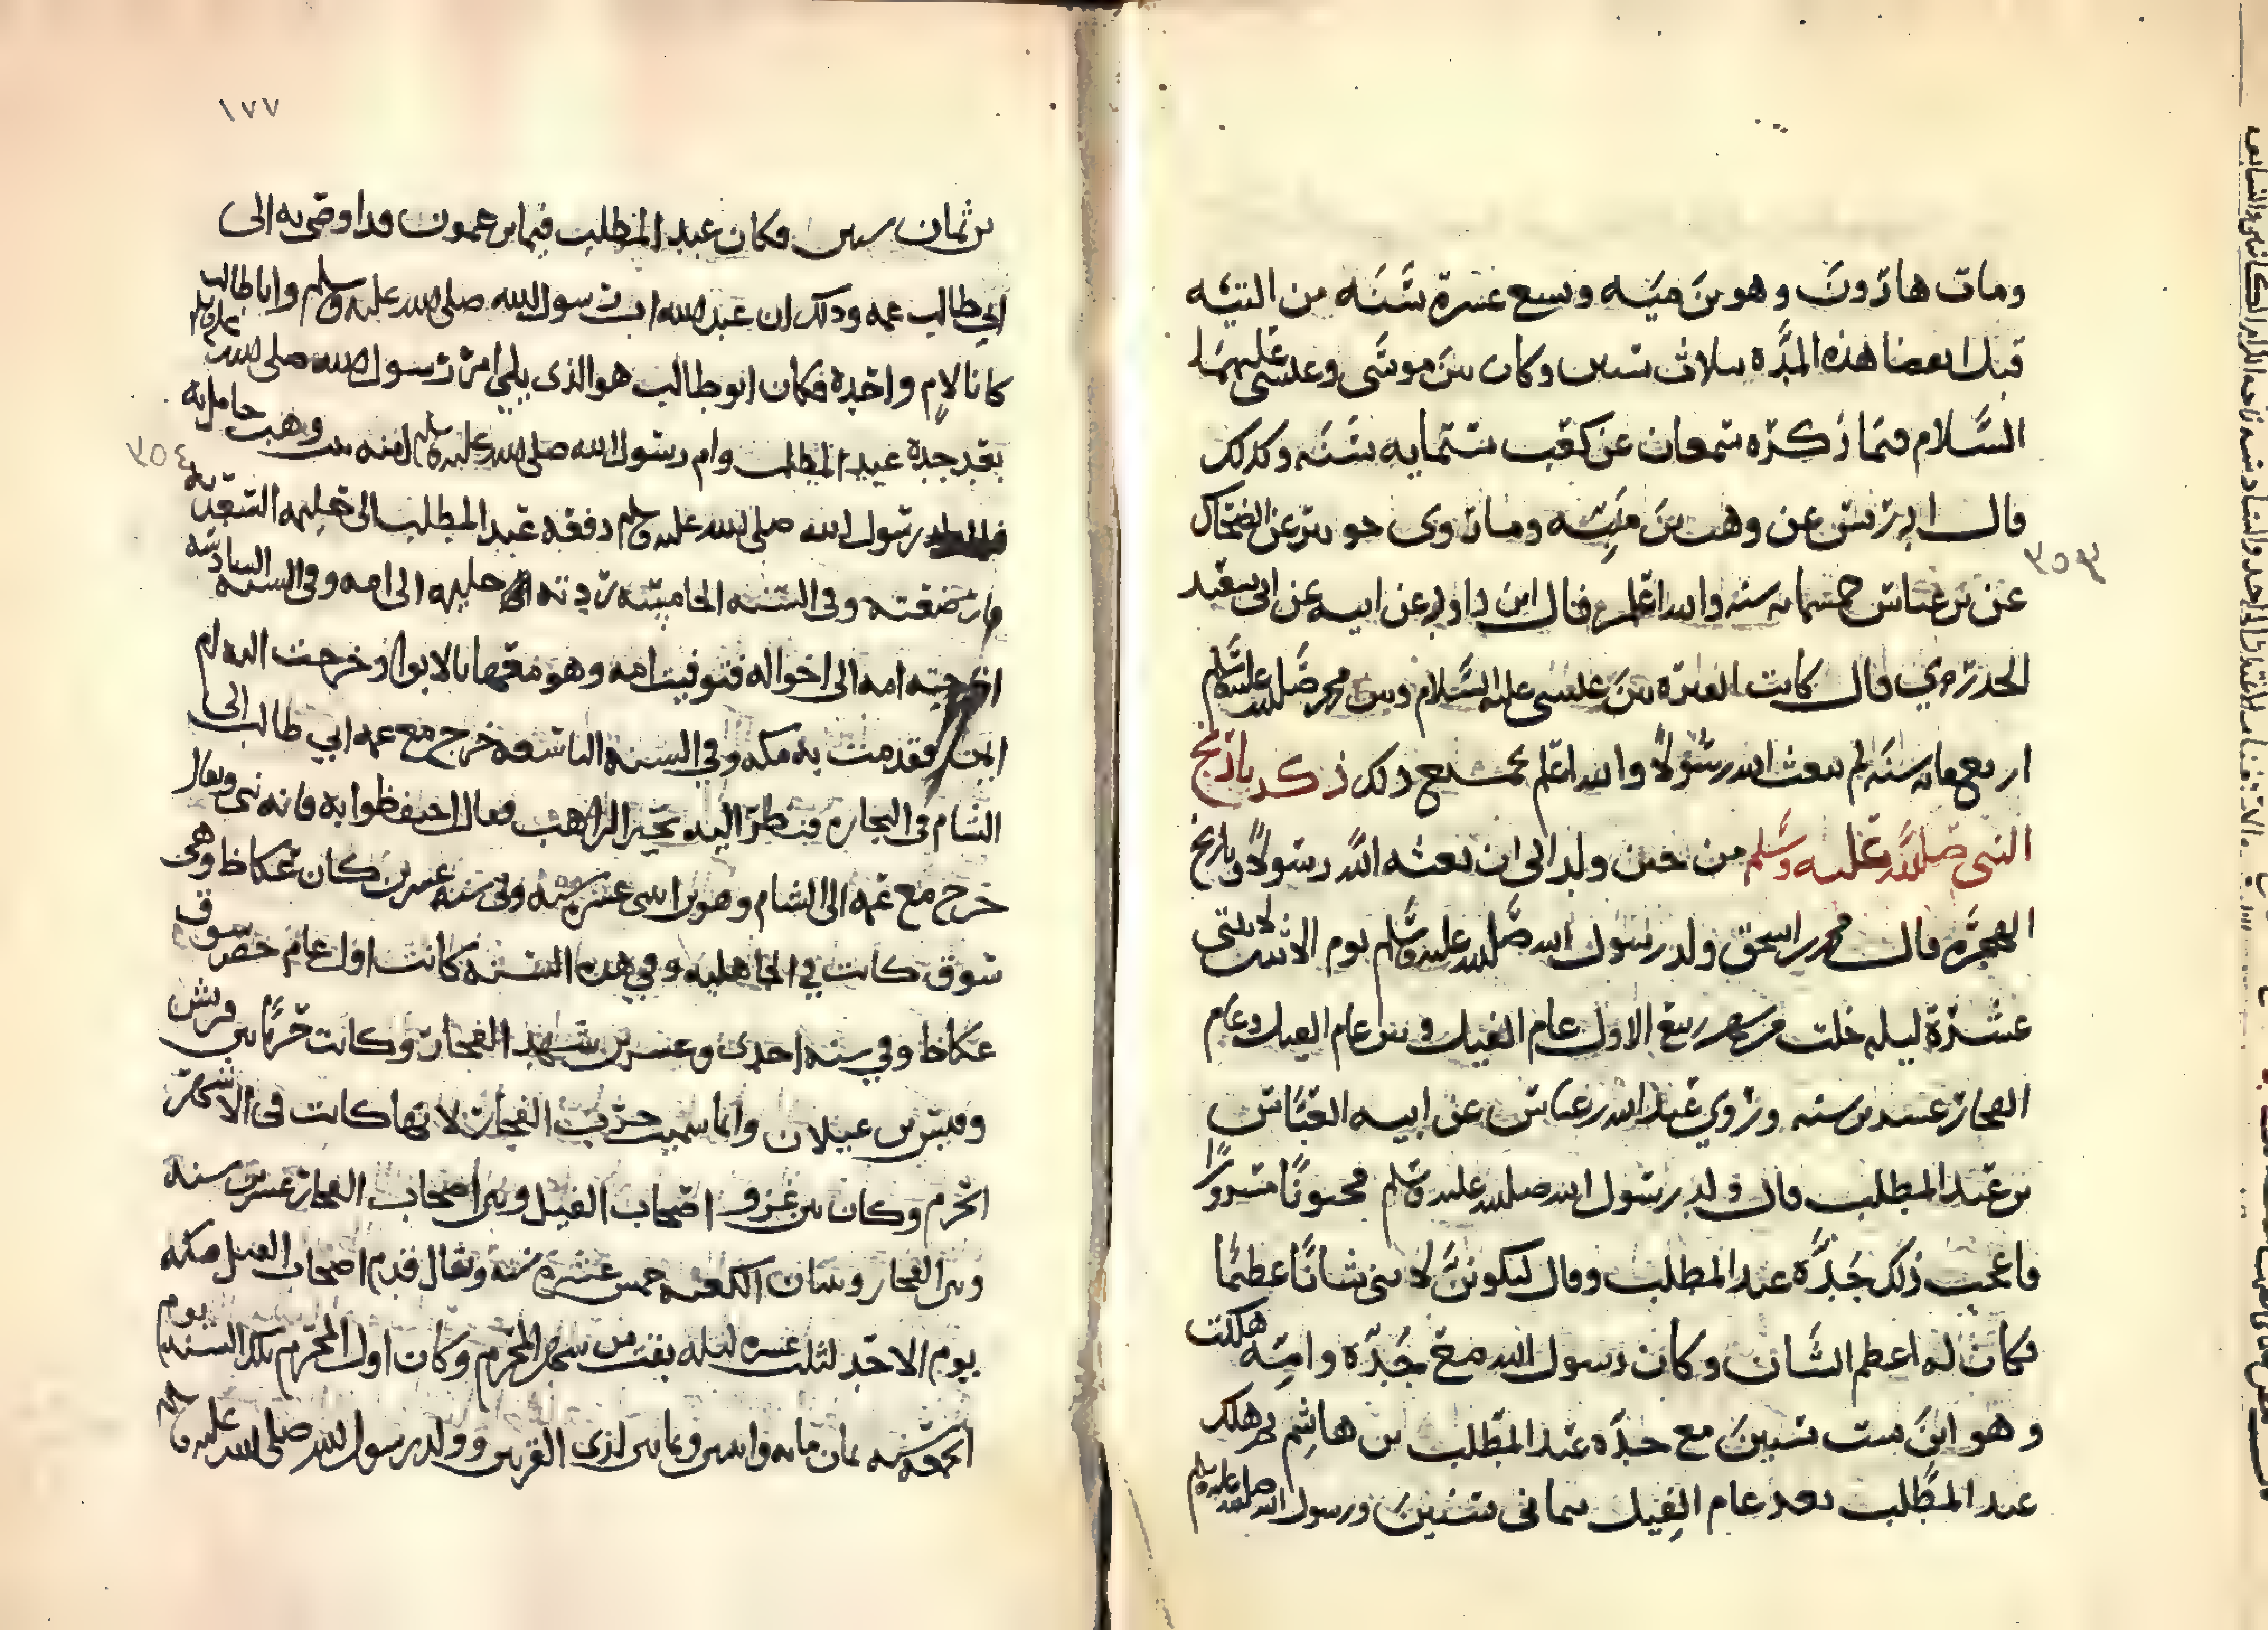 ومات هارون وهو بن ميه وسبع عشرة سنه من التيه
قبل انقضا هذه المده بثلاث سنين وكان بين موسى وعيسى عليهما
السلام فيما ذكره شمعان عن كعب ستمايه سنه وكذلك
قال ادريس عن وهب بن منبه وما روى جويبر عن الضحاك
عن بن عباس خمسمايه سنه والله اعلم قال ابن داود عن ابيه عن ابي سعيد
الخدري قال كانت الفتره بين عيسى عليه السلام وبين محمد صلى الله عليه وسلم
اربعمايه سنه لم يبعث الله رسولا والله اعلم بجميع ذلك ذكر تاريخ
النبي صلى الله عليه وسلم من حين ولد الى ان بعثه الله رسولا وتاريخ
الهجره قال محمد بن اسحق ولد رسول الله صلى الله عليه وسلم يوم الاثنين لاثنتي
عشرة ليله خلت من شهر ربيع الاول عام الفيل وبين عام الفيل وعام
الفجار عشرين سنه وروي عبد الله بن عباس عن ابيه العباس
بن عبد المطلب قال ولد رسول الله صلى الله عليه وسلم مختونا مسرورا
فاعجب ذلك جده عبد المطلب وقال ليكونن لابني شانا عظيما
فكان له اعظم الشان وكان رسول الله مع جده وامه فهلكت
وهو ابن ست سنين مع جده عبد المطلب بن هاشم ثم هلك
عبد المطلب بعد عام الفيل بثماني سنين ورسول الله صلى الله عليه وسلم
٣٥٣
١٧٧
بن ثمان سنين فكان عبد المطلب فيما يزعمون قد اوصى به الى
ابي طالب عمه وذلك ان عبد الله ابا رسول الله صلى الله عليه وسلم وابا طالب
كانا لام واحدة فكان ابو طالب هو الذي يلي امر رسول الله صلى الله عليه وسلم
بعد جده عبد المطلب وام رسول الله صلى الله عليه وسلم امنه بنت وهب حامل به
فلما ولد رسول الله صلى الله عليه وسلم دفعه عبد المطلب الى حليمه السعديه
فارضعته وفي السنه الخامسه ردته حليمه الى امه وفي السنه السادسه
اخرجته امه الى اخواله فتوفيت امه وهو معها بالابوا وخرجت اليه ام
ايمن فقدمت به مكه وفي السنه التاسعه خرج مع عمه ابي طالب الى
الشام في التجاره فنظر اليه بحيرا الراهب فقال احتفظوا به فانه نبي ويقال
خرج مع عمه الى الشام وهو بن اثنى عشره سنه وفي سنه عشرين كان عكاظ وهى
سوق كانت في الجاهليه وفي هذه السنه كانت اول عام حضر سوق
عكاظ وفي سنه احدى وعشرين شهد الفجار وكانت حربا بين قريش
وقيس بن عيلان وانما سميت حرب الفجار لانها كانت في الاشهر
الحرم وكان بين غزو اصحاب الفيل وبين اصحاب الفجار عشرين سنه
وبين الفجار وبنيان الكعبه خمس عشره سنه ويقال قدم اصحاب الفيل مكه
يوم الاحد لثلث عشره ليله بقيت من شهر المحرم وكان اول المحرم تلك السنه يوم
الجمعه سنه ثمان مايه واثنين وثمانين لذي القرنين وولد رسول الله صلى الله عليه وسلم
٣٥٤